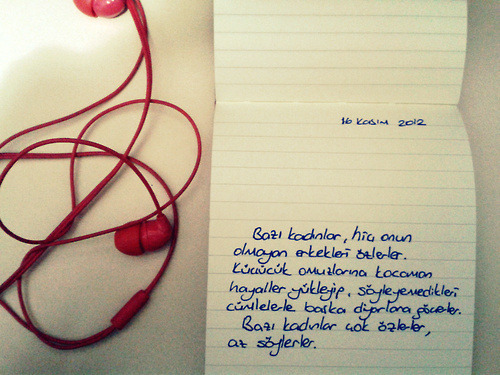 16 Kasım 2012
Bazı kadınlar, hiç onun
olmayan erkekleri özlerler.
Küçücük omuzlarına kocaman
hayaller yükleyip, söyleyemedikleri
cümlelerle başka diyarlara göçerler.
Bazı kadınlar çok özlerler,
az söylerler.